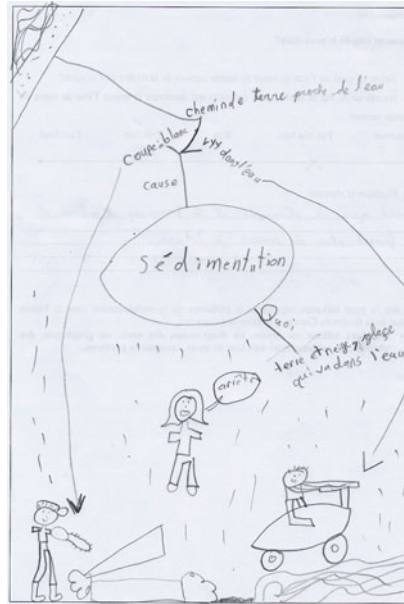 chemin de terre proche de l'eau
coupe à blanc
vtt dans l'eau
cause
Sédimentation
Quoi
terre et neige, glace
qui va dans l'eau
arrête